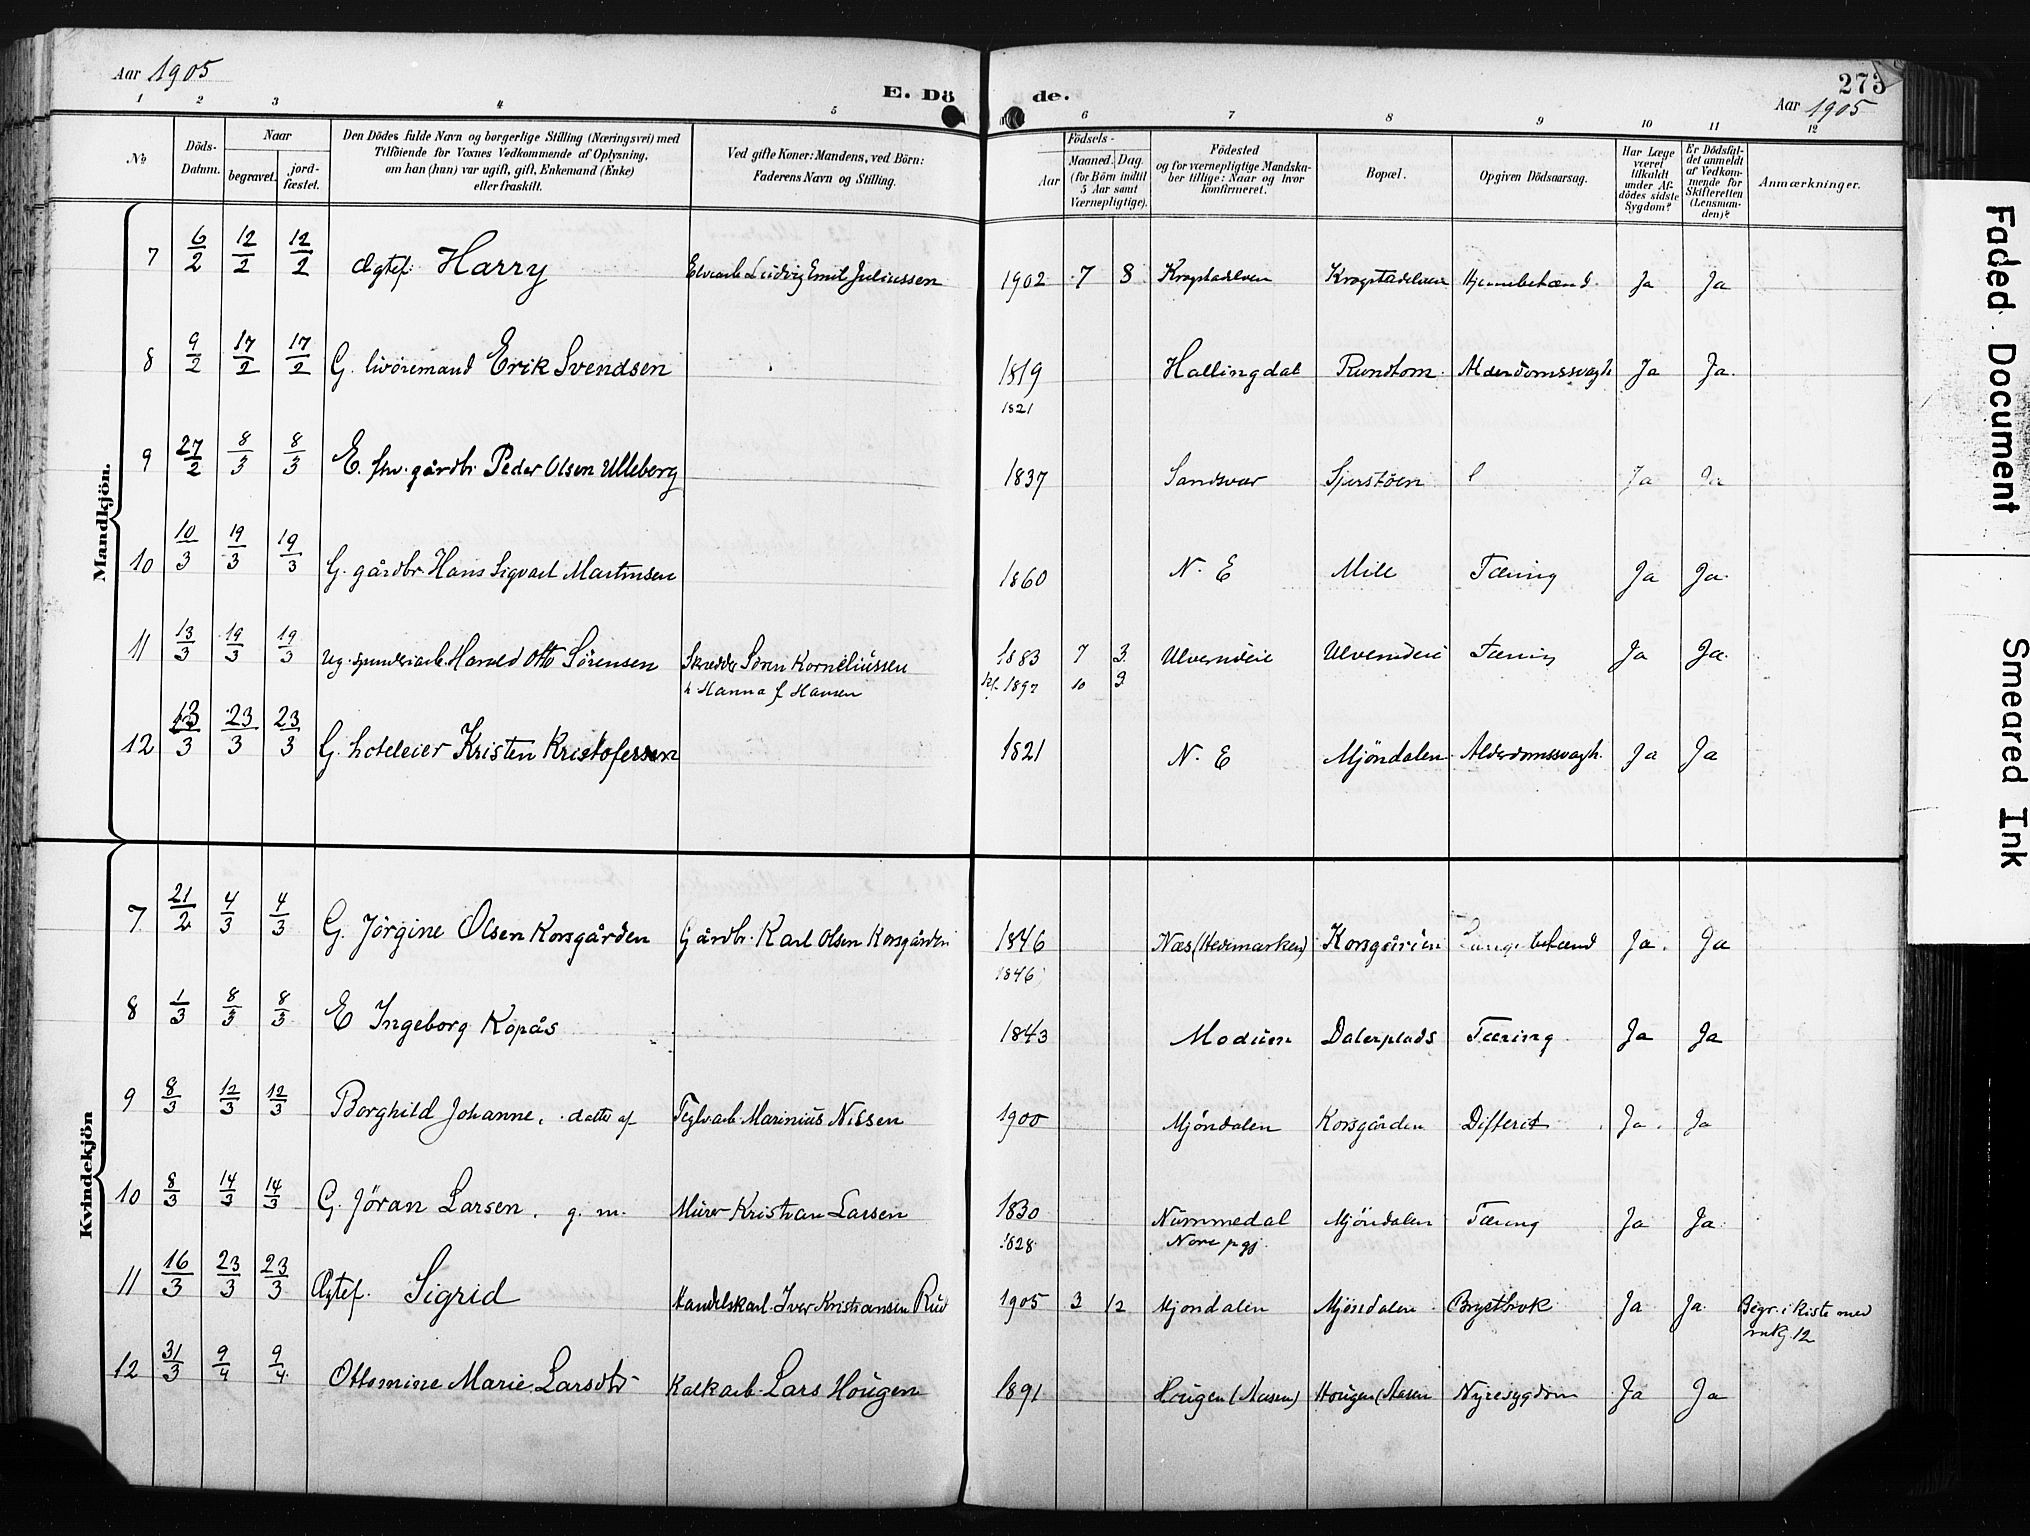 Aar 1905
E. Dö de.
273
Aar 1905
1 2 3 4 5 6 7 8 9 10 11 12
No
Döds-
Datum.
Naar
begravet.
jord-
fæstet.
Den Dödes fulde Navn og borgerlige Stilling (Næringsvei) med
Tilföiende for Voxnes Vedkommende af Oplysning,
om han (hun) var ugift, gift, Enkemand (Enke)
eller fraskilt.
Ved gifte Koner: Mandens, ved Börn:
Faderens Navn og Stilling.
Födsels-
Aar
Maaned.
Dag.
(for Börn indtil
5 Aar samt
Værnepligtige).
Födested
og for værnepligtige Mandska-
ber tillige: Naar og hvor
konfirmeret.
Bopæl.
Opgiven Dödsaarsag.
Har Læge
været
tilkaldt
under Af-
dödes sidste
Sygdom?
Er Dödsfal-
det anmeldt
af Vedkom-
mende for
Skifteretten
(Lensman-
den)?
Anmærkninger.
Mandkjön.
7 6/2 12/2 12/2 Ægtef. Harry Elvearb Ludvig Emil Juliussen 1902 7 8 Krogstadelven Krogstadelven Hjernebetænd. Ja Ja
8 9/2 17/2 17/2 G. livöremand Erik Svendsen 1819 Hallingdal Rundtom Alderdomssvagh Ja Ja.
1821
9 27/2 8/3 8/3 E. fhv. gårdbr. Peder Olsen Ulleberg 1837 Sandsvær Ja Ja
10 10/3 19/3 19/3 G. gårdbr. Hans Sigvart Martinsen 1860 N. E Mile Tæring Ja Ja.
11 13/3 19/3 19/3 ug. spinderiarb. Harald Otto Sörensen Skrædder Sören Korneliussen 1883 7 3 Ulverndeie Tæring Ja Ja.
h Hanna f. Hansen kf. 1897 10 3
12 13/3 23/3 23/3 G. hoteleier Kristen Kristofersen 1821 N. E Mjöndalen Alderdomssvagh. Ja Ja
Kvindekjön
7 21/2 4/3 4/3 G. Jörgine Olsen Korsgården Gårdbr. Karl Olsen Korsgården 1846 Næs (Hedemarken) Korsgården Ja. Ja
1846
8 1/3 8/3 8/3 E Ingeborg Kopås 1843 Modum Dalerplads Tæring Ja Ja
9 8/3 12/3 12/3 Borghild Johanne, datter af Teglvarb. Marinius Nilsen 1900 Mjöndalen Korsgården Difterit Ja. Ja
10 8/3 14/3 14/3 G. Jöran Larsen. g. m. Murer Kristian Larsen 1830 Nummedal Mjöndalen Tæring Ja Ja
1828 Nore pgj.
11 16/3 23/3 23/3 Ægtef. Sigrid Handelskarl Iver Kristiansen Rud 1905 3 12 Mjöndalen Mjöndalen Ja Ja. Begr. i kiste med
mkj. 12
12 31/3 9/4 9/4 Ottomine Marie Larsdtr Kalkarb. Lars Hougen 1891 Hougen (Aasen) Hougen (Aasen Nyresygdom Ja Ja
Faded Document
Smeared Ink